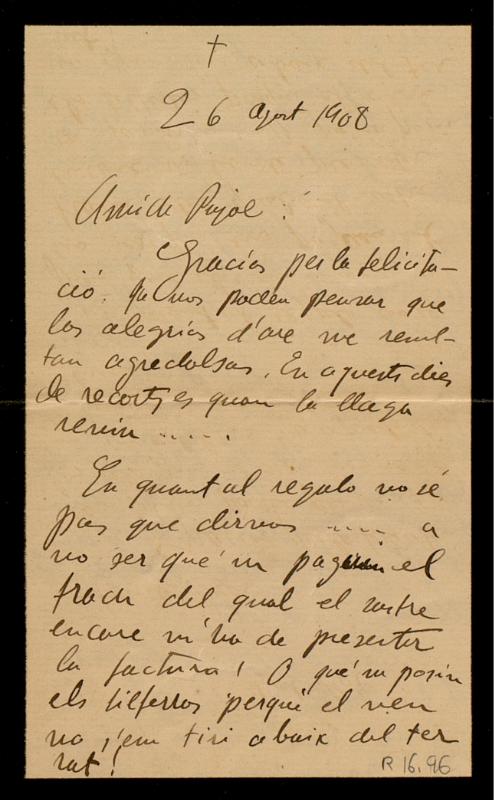 26 agost 1908
Amich Pujol:
Gracias per la felicita-
ció. Ja vos poden pensar que
las alegrías d'are me resul-
tan agredolsas. En aquests dies
de recorts, es quan la llaga
reviu .....
En quant al regalo no sé
pas que dirvos .... a
no ser qué 'm paguin el
frach del qual el sastre
encare m'ha de presentar
la factura! O qué 'm posin
els filferros perqué el ven
no s'em tiri abaix del ter
rat!
R 16.96